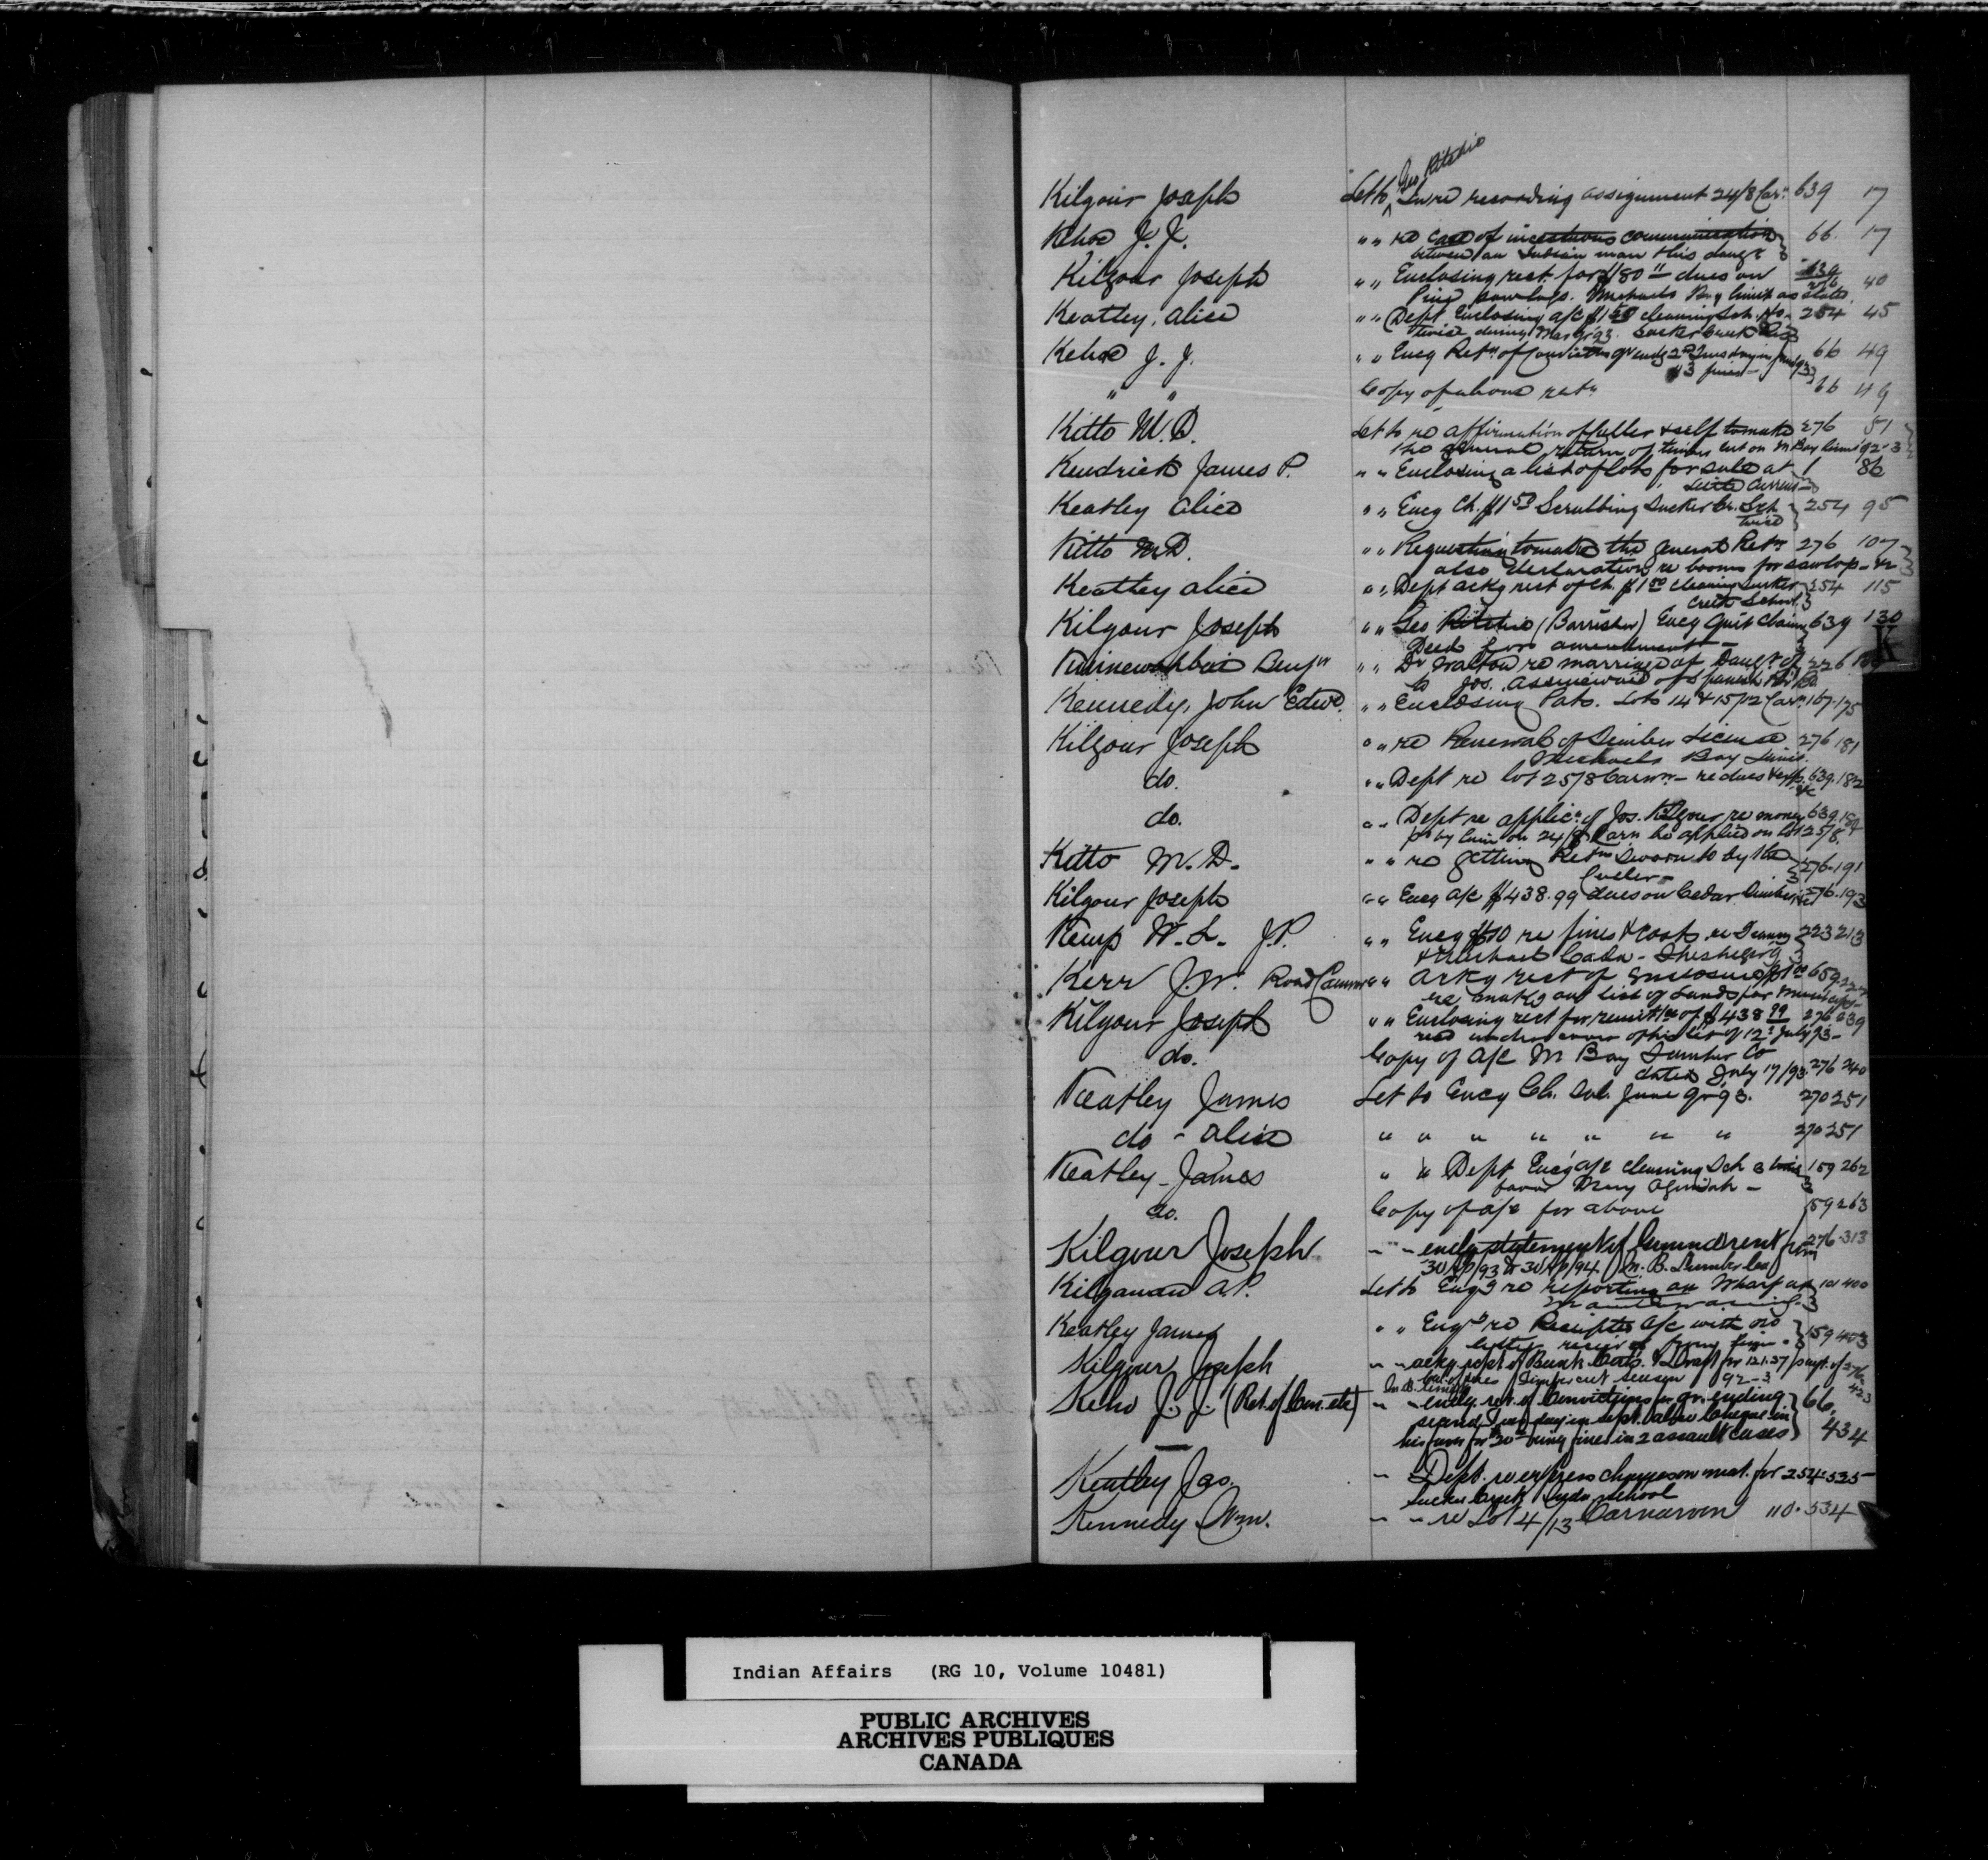 Geo Ritchie
Kilgour Joseph Let to in re recording assignment 24/8 Carn. 639 17
Kehoe J. J. " " re case of incestuous communication 66. 17
between an Indian man & his daugr
Kilgour Joseph " " Enclosing rect. for $180 dues on 639 276 40
Pine sawlogs. Michaels Bay limit as stated
Keatley, Alice " " Dept Enclosing a/c $1 50 cleaning Sch. Ho. 254 45
twice during Mar qr 93. Sucker Creek
Kehoe J. J. " " Encg Retn of Convictions qr endg 2nd Tuesday in 66 49
$3 fines
" " Copy of above retn 66 49
Kitto M. D. Let to re affirmation of Culler & self to make 276 51
the general return of timber cut on M Bay limit 92-3
Kendrick James P. " " Enclosing a list of lots for sale at 1 86
Little Current
Keatley Alice " " Encg Ch. $1 50 Scrubbing Sucker Cr. Sch 254 95
twice
Kitto M.D. " " Requesting to make the general Retn 276 107
also declaration re booms for sawlogs - &c
Keatley Alice " " Dept ackg rect of Ch. $1 50 cleaning Sucker 254 115
Creek School
Kilgour Joseph " " Geo Ritchie (Barrister) Encg Quit Claim 639 130
Deed for amendment
K
Benjn " " Dr Walton re marriage of Daugr of 226
to Jos. of Spanish Rivr
Kennedy, John Edwd. " " Enclosing Pats. Lots 14 & 15/12 Carn 107.175
Kilgour Joseph " " re Renewal of Timber License 276 181
Michaels Bay Limit.
do. " " Dept re lot 25/8 Carnn - re dues &c 639.182
do. " " Dept re applicn of Jos. Kilgour re money 639
pd by him on 24/8 Carn be applied on lot 25/8.
Kitto M. D. " " re getting Retns sworn to by the 276.191
Culler -
Kilgour Joseph " " Encg a/c $438.99 dues on Cedar Timber 276.193
Kemp W. L. J.P. " " Encg $10 re fines & Costs re 223 213
- Sheshegwaning
Kerr J. W. Road Commr " " Ackg rect of enclosure 659
re making out list of Lands for
Kilgour Joseph " " Enclosing rect for remittce of $438 99 276 239
recd under cover of his let of 12th July 93 -
do. Copy of a/c M Bay Lumber Co
dated July 17/93. 276 240
Keatley James Let to Encg Ch. Sal. June qr 93. 270 251
do - Alice " " " " " " " 270 251
Keatley - James " " Dept Encg a/c cleaning Sch 3 times 159 262
favor Mary -
do. Copy of a/c for above 159 263
Kilgour Joseph " - encl'g statement of Ground rent from 276.313
30 Ap/93 to 30 Ap/94 M. B. Lumber Co.
A. P. Let to Engr re reporting on Wharf at 10 400
Keatley James " " Engr re Receipted a/c with no 159 403
letter received from him.
Kilgour Joseph " - ackg rect of Bank Certs. & Draft for 121.37 paymt. of 276
bal. of dues Timber cut season 92-3 423
M.B. limits
Keho J. J. (Ret. of Con. etc) " - encl'g ret. of Convictions for qr. ending 66,
second Tuesday in Sept. also Cheque in
his favor for $20 being fines in 2 assault cases 434
Keatley Jas. " - Dept. re express charges on meat. for 254.535
Sucker Creek Indn School
Kennedy Wm. " - re Lot 4/13 Carnarvon 110.534
Indian Affairs (RG 10, Volume 10481)
PUBLIC ARCHIVES
ARCHIVES PUBLIQUES
CANADA